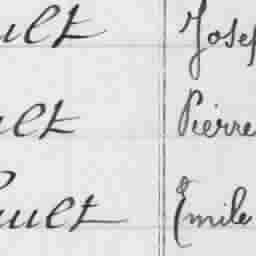 ult Josep
ult Pierre
ault Emile